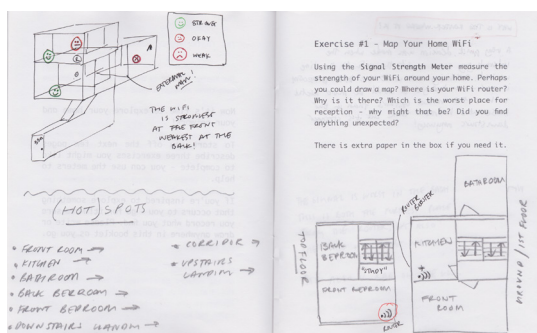 STRONG
OKAY
WEAK
EXTERNAL
WALL!
THE WIFI
IS STRONGEST
AT THE FRONT
WEAKEST AT THE
BACK!
(HOT) SPOTS
* FRONT ROOM →
* KITCHEN →
* BATHROOM →
* BACK BEDROOM →
* FRONT BEDROOM →
* DOWNSTAIRS LANDING →
* CORRIDOR →
* UPSTAIRS
LANDING →
Exercise #1 - Map Your Home WiFi
Using the Signal Strength Meter measure the
strength of your WiFi around your home. Perhaps
you could draw a map? Where is your WiFi router?
Why is it there? Which is the worst place for
reception - why might that be? Did you find
anything unexpected?
There is extra paper in the box if you need it.
TOP FLOOR
BACK
BEDROOM
"STUDY"
FRONT BEDROOM
ROUTER
ROUTER
BOOSTER
BATHROOM
KITCHEN
FRONT
ROOM
GROUND / 1ST FLOOR